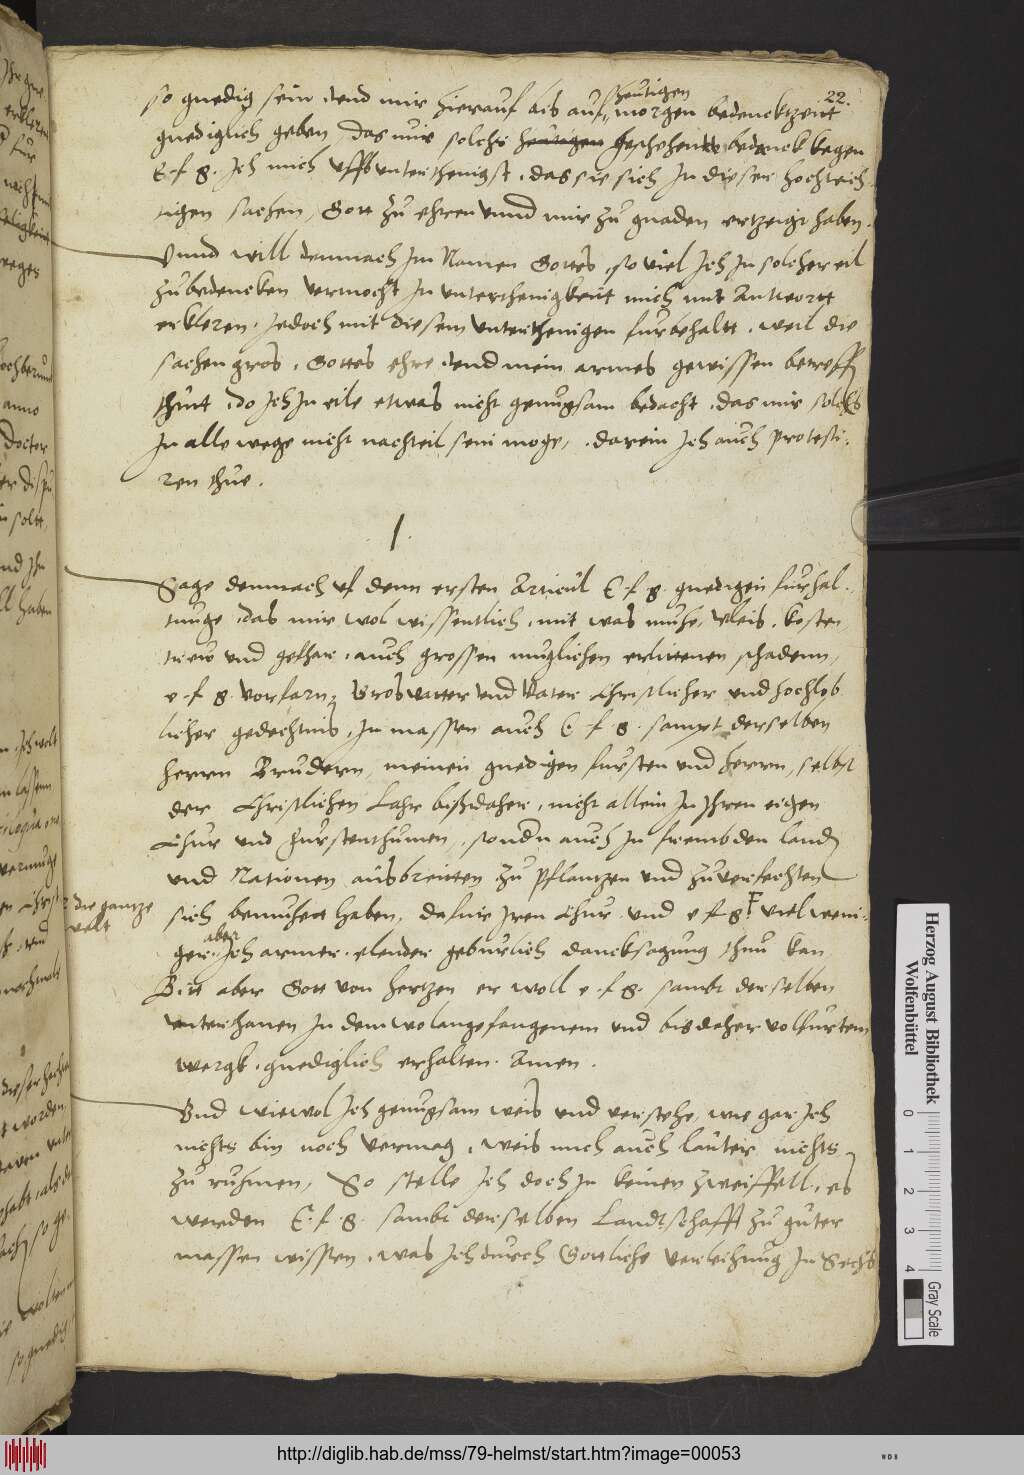 22.
so gnedig sein, vnd mir hierauf bis auf heutigen morgen bedencktzeit
gnediglich geben, das mir solchs heutigen geschehen, bedanck kegen
E. f. g. Ich mich vffs vnterthenigst, das sie sich In dieser hochwich
tigen sachen, Gott zu ehren vnnd mir zu gnaden ertzeigt haben.
Vnnd will demnach Im Namen Gottes, so viel Ich In solcher eil
zu bedencken vermocht In vnterthenigkeit mich mit Antwort
erkleren. Jedoch mit diesem vnterthenigen furbehaltt, weil die
sachen gros, Gottes ehre vnd mein armes gewissen betreffen
thut, do Ich In eile etwas nicht genugsam bedacht, das mir solchs
In alle wege nicht nachteil sein moge, darein Ich auch protesti-
ren thue.
1.
Sage demnach vf denn ersten Articul E f g. gnedigen furhal-
tunge, das mir wol wissentlich, mit was muhe, vleis, kosten,
trew vnd gefhar, auch grossen muglichen erlittenen schadenn,
e. f. g. vorfarn, Grosvatter vnd Vater Christlicher vnd hochlob
licher gedechtnis, In massen auch E. f. g. sampt derselben
herrn Brudern, meinen gnedigen fursten vnd herrn, selbst
der Christlichen Lahr bißdaher, nicht allein In Ihren eigen
Chur vnd furstenthumen, sondern auch In frembden landen
vnd Nationen ausbreitten zu pflantzen vnd zuuerfechten
sich bemuhet haben, dafuir Iren Chur vnd e f g. viel weni-
die gantze
welt
ger aber Ich armer elender geburlich dancksagung thun kan
Bitt aber Gott von hertzen er woll e. f. g. sambt derselben
vnterthanen In dem wolangefangenem vnd bisdaher volfurtem
wergk, gnediglich erhalten. Amen.
Vnd wiewol Ich genugsam weis vnd verstehe, wie gar Ich
nichts bin noch vermag, weis mich auch lauter nichts
zu ruhmen, So stelle Ich doch In keinen zweiffell, es
werden E. f. g. sambt derselben Landtschafft zu guter
massen wissen, was Ich durch Gottliche verleihung In Sechs
Herzog August Bibliothek
Wolfenbüttel
0 1 2 3 4
Gray Scale
http://diglib.hab.de/mss/79-helmst/start.htm?image=00053